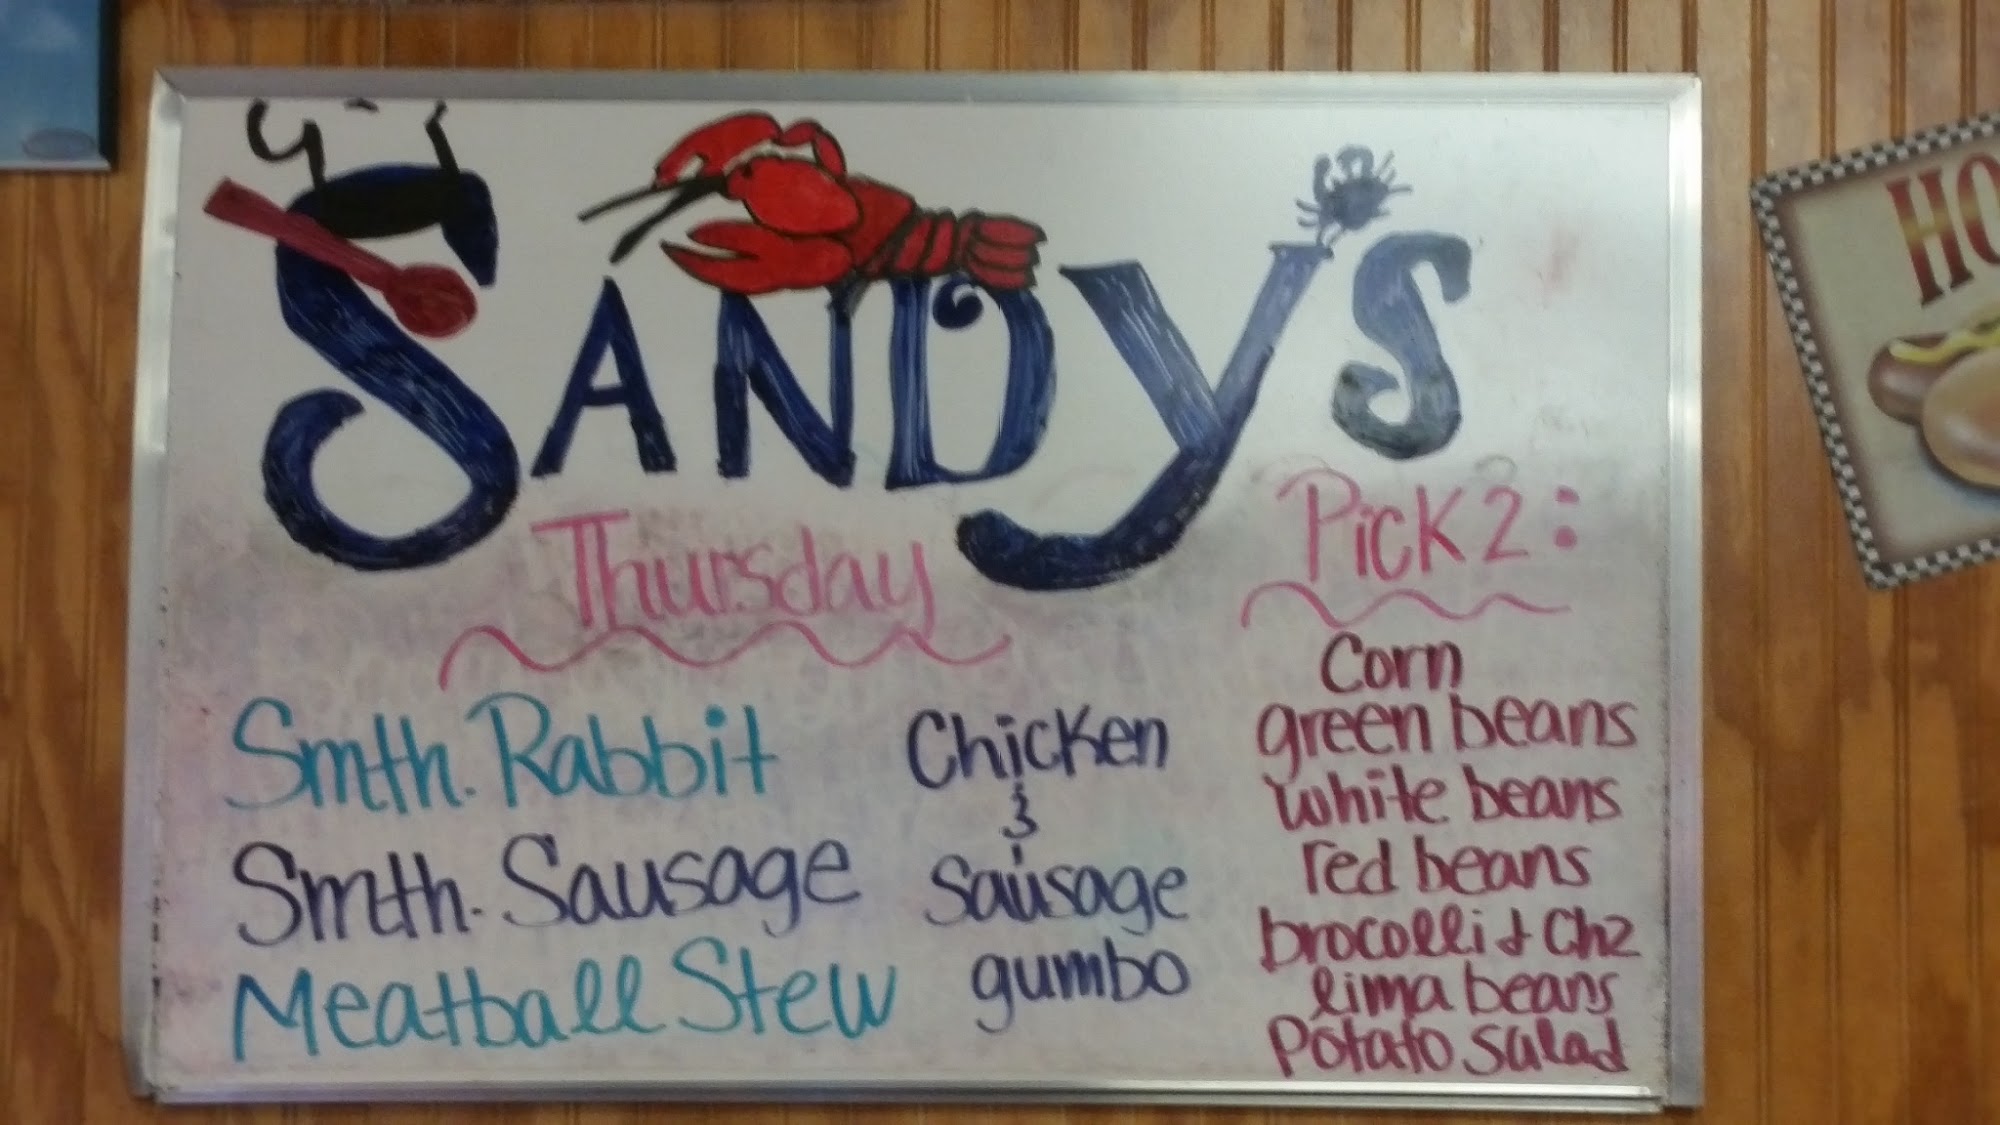 SANDY'S
Thursday
Smth. Rabbit
Smth. Sausage
Meatball Stew
Chicken
&
Sausage
gumbo
Pick 2:
Corn
green beans
white beans
red beans
brocolli & Chz
lima beans
Potato Salad
HO